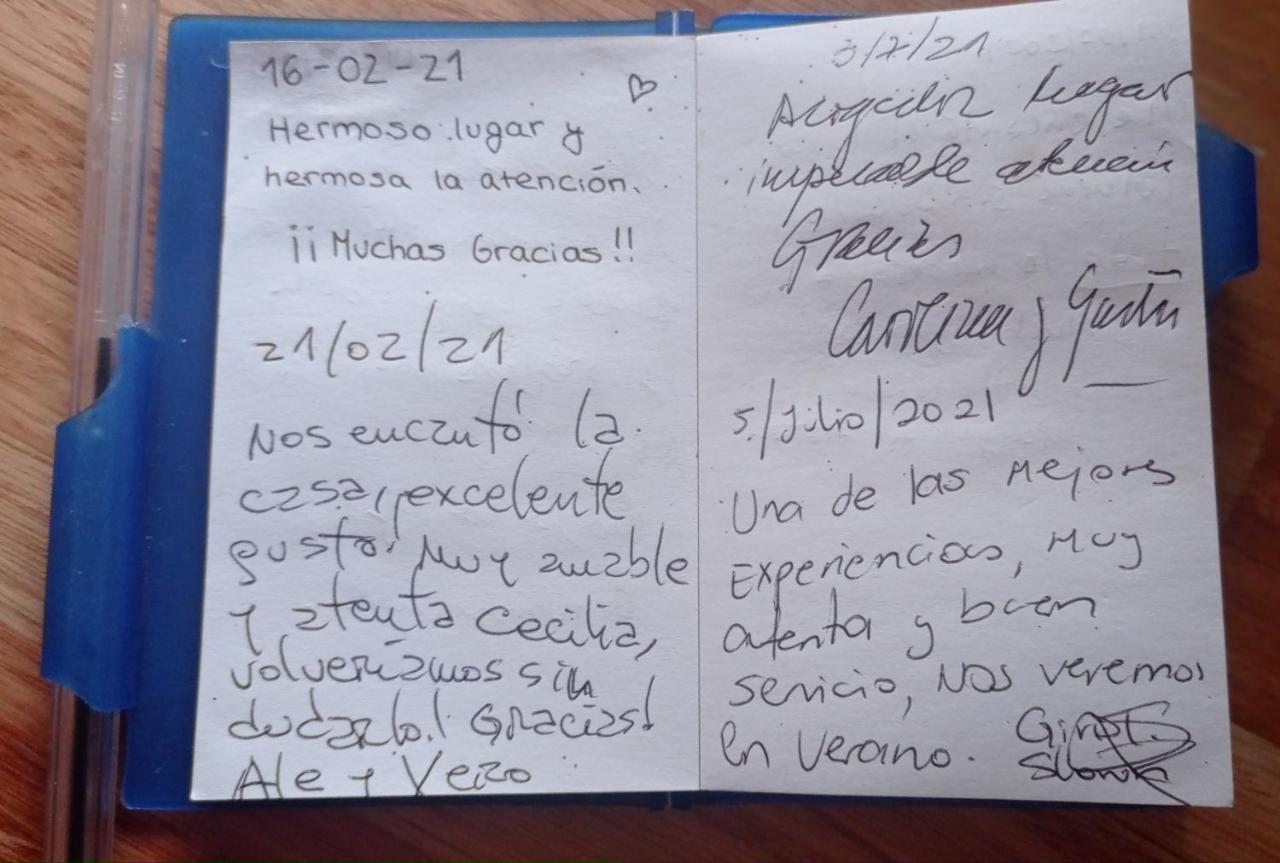 16-02-21
Hermoso lugar y
hermosa la atención.
¡¡Muchas Gracias!!
21/02/21
Nos encantó! la
casa, excelente
gusto. Muy amable
y atenta Cecilia,
volveríamos sin
dudarlo! Gracias!
Ale y Vero
3/7/21
Acogedor lugar
impecable atención
Gracias
Carolina y Gastón
5/Julio/2021
Una de las mejores
Experiencias, muy
atenta y buen
servicio, nos veremos
en verano.